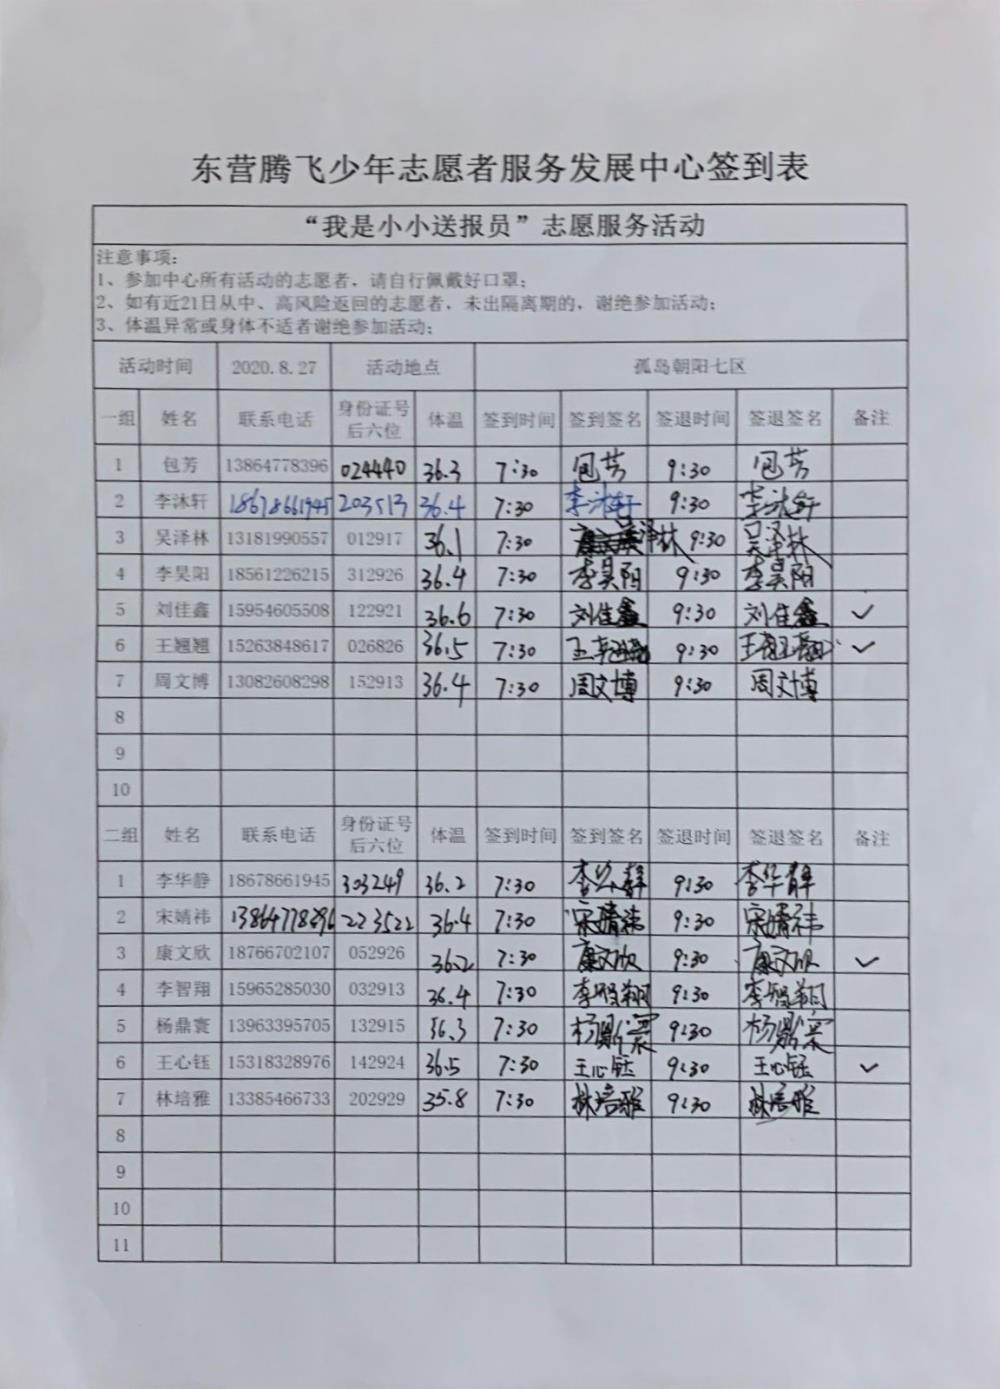 东营腾飞少年志愿者服务发展中心签到表
“我是小小送报员”志愿服务活动
注意事项:
1、参加中心所有活动的志愿者，请自行佩戴好口罩;
2、如有近21日从中、高风险返回的志愿者，未出隔离期的，谢绝参加活动;
3、体温异常或身体不适者谢绝参加活动;
活动时间 2020.8.27 活动地点 孤岛朝阳七区
一组 姓名 联系电话 身份证号后六位 体温 签到时间 签到签名 签退时间 签退签名 备注
1 包芳 13864778396 024440 36.3 7:30 包芳 9:30 包芳
2 李沐轩 18678661945 203513 36.4 7:30 李沐轩 9:30 李沐轩
3 吴泽林 13181990557 012917 36.1 7:30 泽林 9:30 吴泽林
4 李昊阳 18561226215 312926 36.4 7:30 李昊阳 9:30 李昊阳
5 刘佳鑫 15954605508 122921 36.6 7:30 刘佳鑫 9:30 刘佳鑫 ✓
6 王翘翘 15263848617 026826 36.5 7:30 王 9:30 王 ✓
7 周文博 13082608298 152913 36.4 7:30 周文博 9:30 周文博
8
9
10
二组 姓名 联系电话 身份证号后六位 体温 签到时间 签到签名 签退时间 签退签名 备注
1 李华静 18678661945 303249 36.2 7:30 李华静 9:30 李华静
2 宋婧祎 13864778296 223522 36.4 7:30 宋婧祎 9:30 宋婧祎
3 康文欣 18766702107 052926 36.2 7:30 康文欣 9:30 康文欣 ✓
4 李智翔 15965285030 032913 36.4 7:30 李智翔 9:30 李智翔
5 杨鼎寰 13963395705 132915 36.3 7:30 杨鼎寰 9:30 杨鼎寰
6 王心钰 15318328976 142924 36.5 7:30 王心钰 9:30 王心钰 ✓
7 林培雅 13385466733 202929 35.8 7:30 林培雅 9:30 林培雅
8
9
10
11